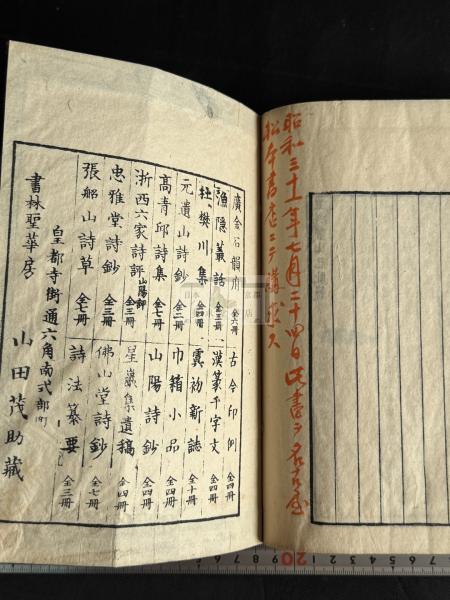 昭和三十一年七月二十四日此書ヲ名古屋
松本書店ニテ購求ス
廣金石韻府 全六冊
漁隠叢話 全三冊
杜樊川集 全四冊
元遺山詩鈔 全二冊
高青邱詩集 全七冊
浙西六家詩評 山陽評 全三冊
忠雅堂詩鈔 全三冊
張船山詩草 全七冊
古今印例 全四冊
漢篆千字文 全四冊
虞初新誌 全十冊
巾箱小品 全四冊
山陽詩鈔 全四冊
星巖集遺稿 全四冊
佛山堂詩鈔 全七冊
詩法纂要 全三冊
皇都寺街通六角南式部町
書林聖華房 山田茂助藏
20